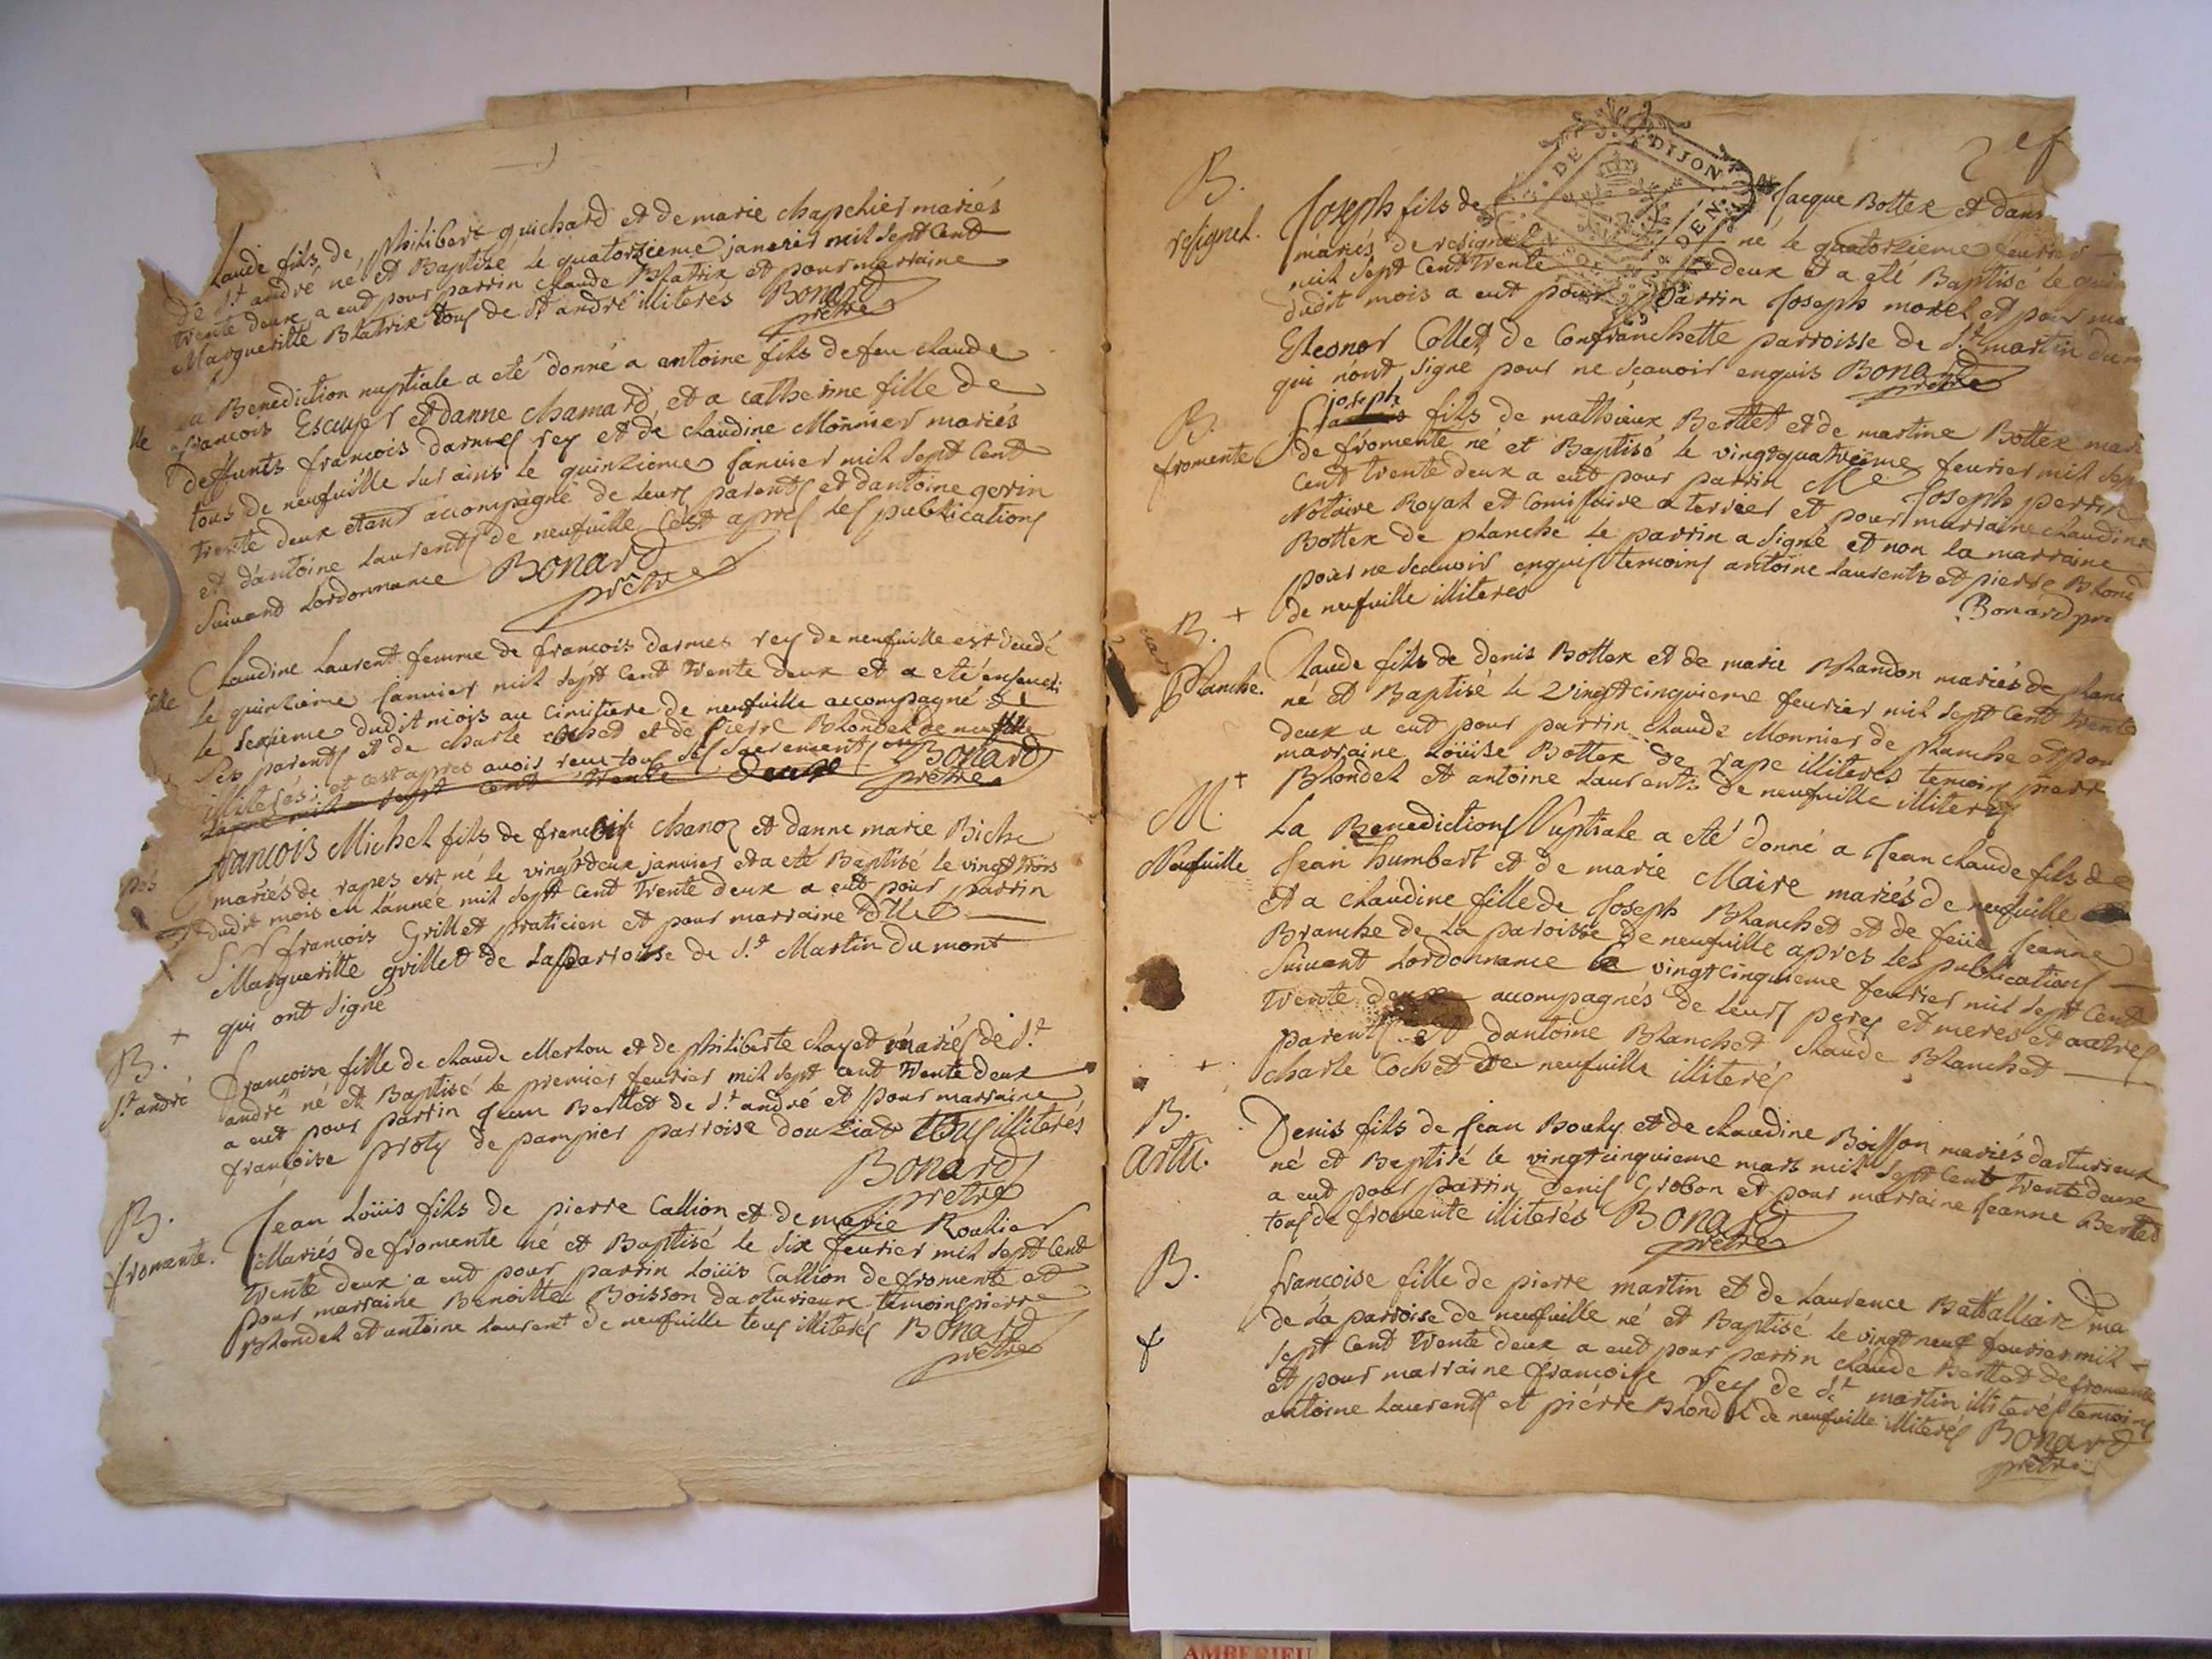 Laude fils de philibert guichard et de marie chapelier mariés
de St andré né et Baptisé le quatorzieme janvier mil sept cent
trente deux a eut pour parrin claude Blatrix et pour marraine
Margueritte Blatrix tous de St andré illiterés Bonard
prêtre
a Benediction nuptiale a eté donné a antoine fils de feu claude
lle
francois Escuyer et danne chamard et a catherine fille de
deffunts francois darmes rey et de claudine Monnier mariés
tous de neufuille sur ains le quinzieme janvier mil sept Cent
trente deux etant accompagné de leurs parents et dantoine gerin
et d'antoine Laurents de neufuille C'est apres les publications
suivant Lordonnance Bonard
prêtre
Claudine Laurent femme de francois darmes rey de neufuille est deudé
lle
le quinzieme janvier mil sept Cent trente deux et a eté enseueli
le sexieme dudit mois au cimistiere de neufuille accompagné de
ses parents et de charle cochet et de pierre Blondel de neufuille
illiterés; et c'est apres avoir receu tous ses sacrements Bonard
prêtre
Lanné mil sept cent trente deux
francois Michel fils de francois chanoz et danne marie Biche
pés
mariés de rapes est né le vingtdeux janvier et a eté Baptisé le vingt trois
dudit mois en Lannée mil sept Cent trente deux a eut pour parrin
Sr francois Grillet praticien et pour marraine dlle
Margueritte grillet de La parroisse de St Martin du mont
qui ont signé
B. +
St andré
francoise fille de claude Merlou et de philiberte clayet mariés de St
andré né et Baptisé le premier feurier mil sept cent trente deux
a eut pour parrin jean Berthet de St andré et pour marraine
françoise proty de pampier parroise douziat tous illiterés
Bonard
prêtre
B.
fromente.
Jean Loüis fils de pierre Callion et de marie Roulier
Mariés de fromente né et Baptisé le six feurier mil sept Cent
trente deux a eut pour parrin Loüis Callion de fromente et
pour marraine Benoitte Boisson darturieux temoins pierre
Blondel et antoine Laurent de neufuille tous illiterés Bonard
prêtre
2 ef
DE DIJON
DEN
B.
resignel.
Joseph fils de Jacque Bottex et dann
mariés de resignel né le quatorzieme feurier
mil sept Cent trente deux et a eté Baptisé le quin
dudit mois a eut pour parrin Joseph morel et pour ma
Eleonor Collet de Confranchette parroisse de St martin du m
qui nont signé pour ne scavoir enquis Bonard
prêtre
B.
fromente
joseph
fils de mathieux Berthet et de martine Bottex mari
de fromente né et Baptisé le vingtquatrieme feurier mil sep
Cent trente deux a eut pour parrin Me Joseph perrin
Notaire Royal et Comissaire a terrier et pour marraine claudine
Bottex de planche le parrin a signé et non la marraine
pour ne scavoir enquis temoins antoine Laurents et pierre Blond
de neufuille illiterés Bonard pre
B. +
Planche.
Claude fils de denis Bottex et de marie Blandon mariés de plane
né et Baptisé le Vingtcinquieme feurier mil sept Cent trente
deux a eut pour parrin claude Monnier de planche et pour
marraine Loüise Bottex de rape illiterés temoins pierr
Blondel et antoine Laurents de neufuille illiterés
M. +
Neufuille
La Benediction Nuptiale a eté donné a Jean claude fils de
Jean humbert et de marie Maire mariés de neufuille
et a claudine fille de Joseph Blanchet et de feüe Jeanne
Branche de La paroisse de neufuille apres les publications
suivant Lordonnance le vingtcinquieme feurier mil sept Cent
trente deux accompagnés de leurs peres et meres et autres
parents et dantoine Blanchet claude Blanchet
+
charle Cochet de neufuille illiterés
B.
artu.
Denis fils de Jean Bouly et de claudine Boisson mariés darturieux
né et Baptisé le vingtcinquieme mars mil sept Cent trente deux
a eut pour parrin denis Grobon et pour marraine Jeanne Berthet
tous de fromente illiterés Bonard
prêtre
B.
francoise fille de pierre martin et de Laurence Battalliard ma
de La parroise de neufuille né et Baptisé le vingt neuf feurier mil
sept Cent trente deux a eut pour parrin claude Berthet de fromente
et pour marraine françoise rey de St martin illiterés temoins
antoine Laurents et pierre Blondel de neufuille illiterés Bonard
prêtre
AMBERIEU